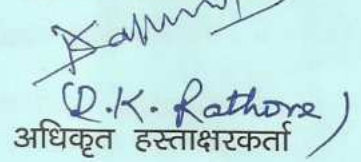 (D.K. Rathore)
अधिकृत हस्ताक्षरकर्ता